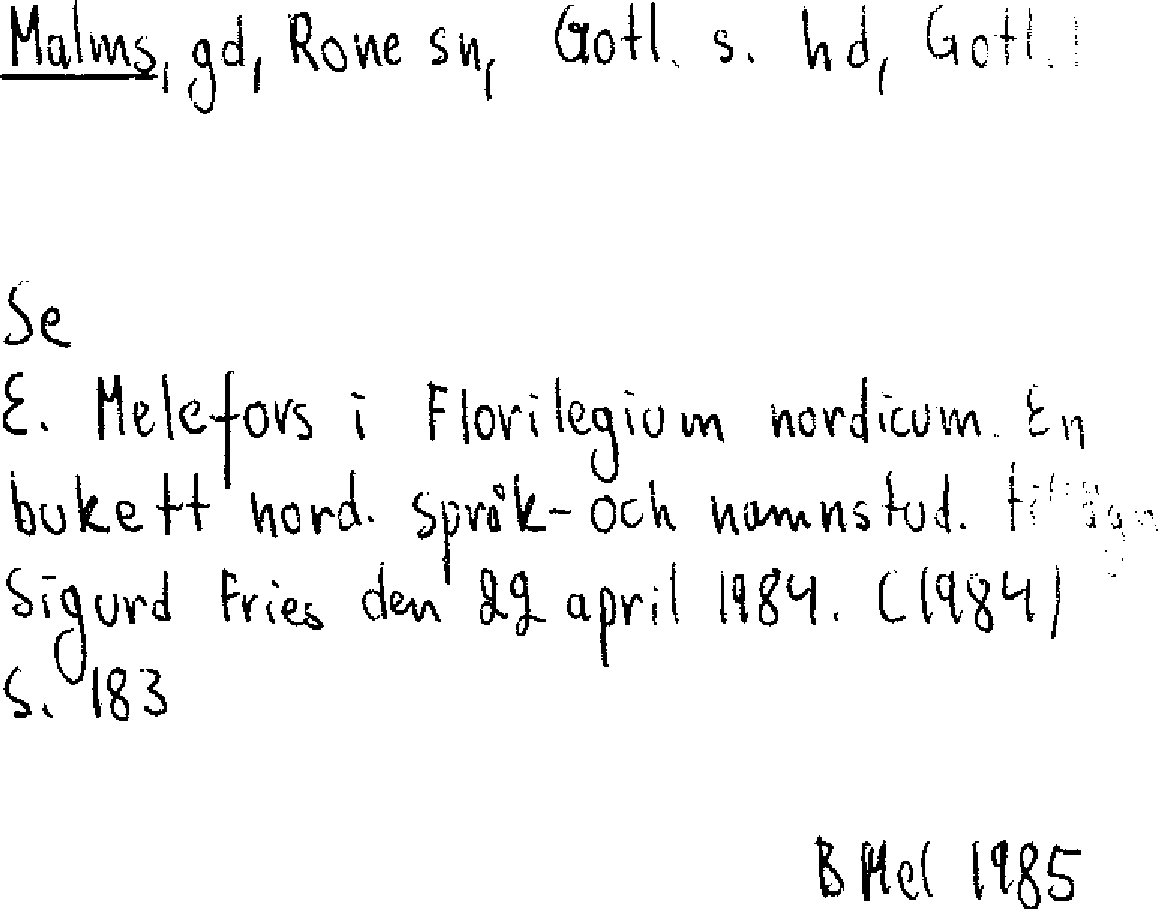 Malms, gd, Rone sn, Gotl. s. hd, Gotl. l
Se
E. Melefors i Florilegium nordicum. En
bukett nord. språk- och namnstud. tillägn.
Sigurd Fries den 22 april 1984. (1984)
s. 183
B Mel 1985